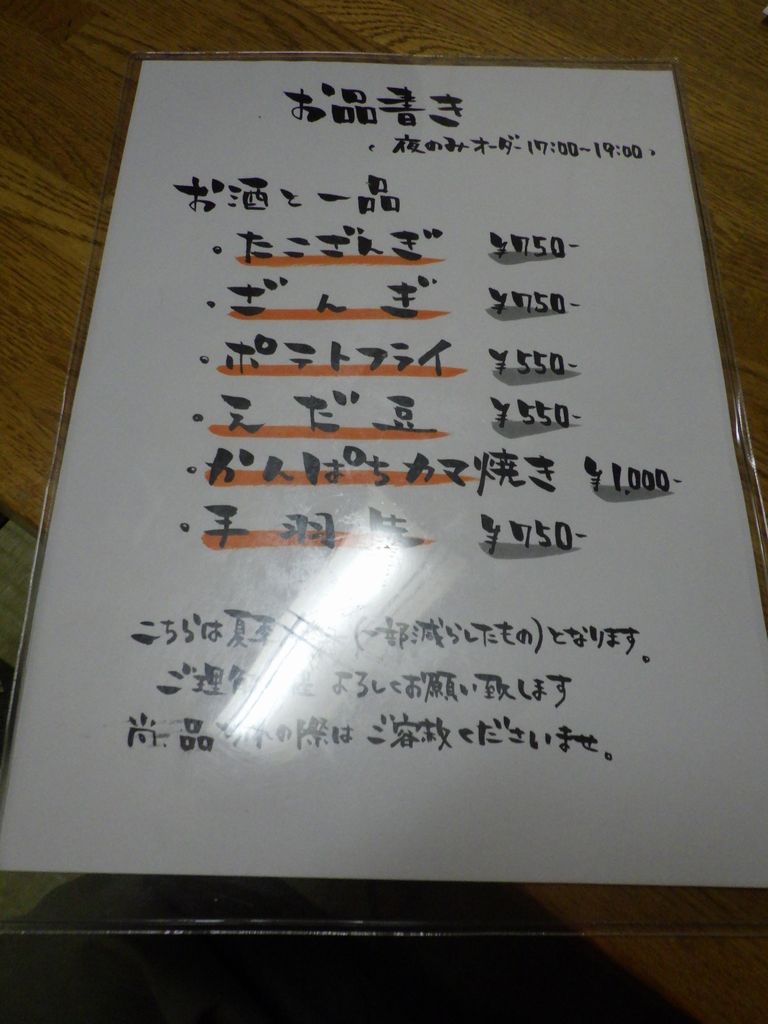 お品書き
夜のみオーダー17:00~19:00
お酒と一品
・たこざんぎ ¥750-
・ざんぎ ¥750-
・ポテトフライ ¥550-
・えだ豆 ¥550-
・かんぱちカマ焼き ¥1,000-
・手羽先 ¥750-
こちらは夏季 (一部減らしたもの)となります。
ご理解 よろしくお願い致します
尚、品 の際はご容赦くださいませ。